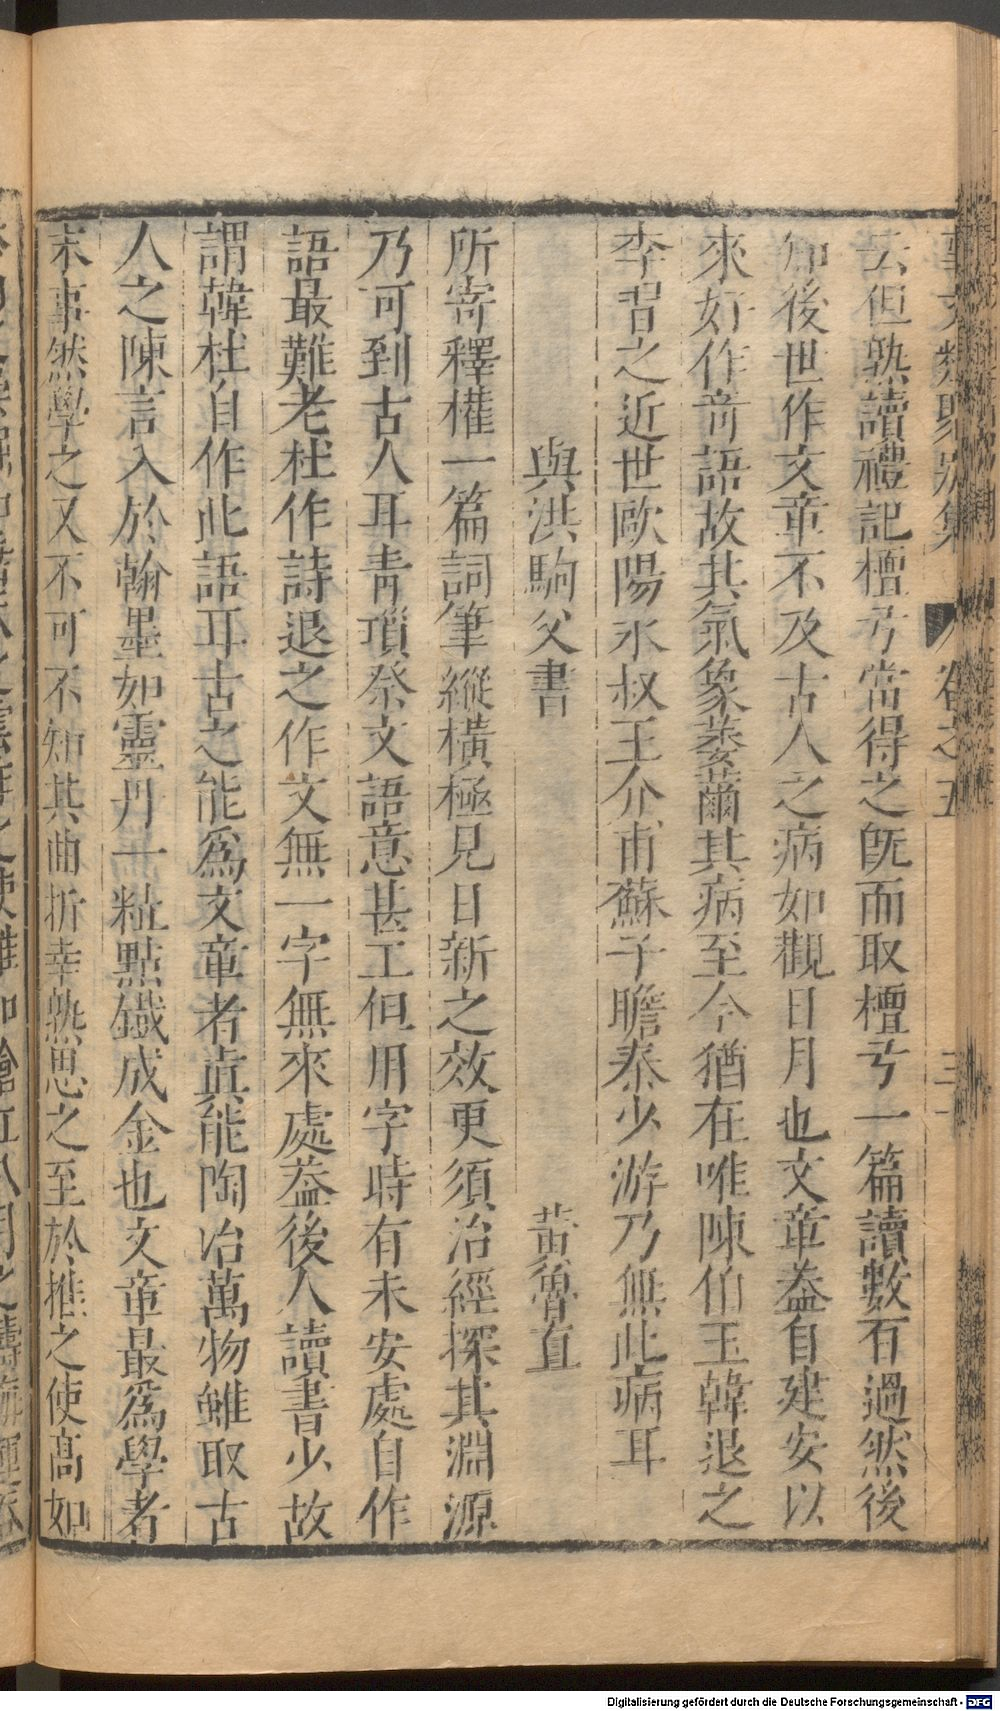 事文類聚別集 卷之五 三
云但熟讀禮記檀弓當得之既而取檀弓一篇讀數百過然後
知後世作文章不及古人之病如觀日月也文章蓋自建安以
來好作奇語故其氣象萎薾其病至今猶在唯陳伯玉韓退之
李習之近世歐陽永叔王介甫蘇子瞻秦少游乃無此病耳
與洪駒父書 黃魯直
所寄釋權一篇詞筆縱橫極見日新之效更須治經探其淵源
乃可到古人耳青瑣祭文語意甚工但用字時有未安處自作
語最難老杜作詩退之作文無一字無來處葢後人讀書少故
謂韓杜自作此語耳古之能爲文章者真能陶冶萬物雖取古
人之陳言入於翰墨如靈丹一粒點鐵成金也文章最爲學者
末事然學之又不可不知其曲折幸熟思之至於推之使高如
Digitalisierung gefördert durch die Deutsche Forschungsgemeinschaft - DFG